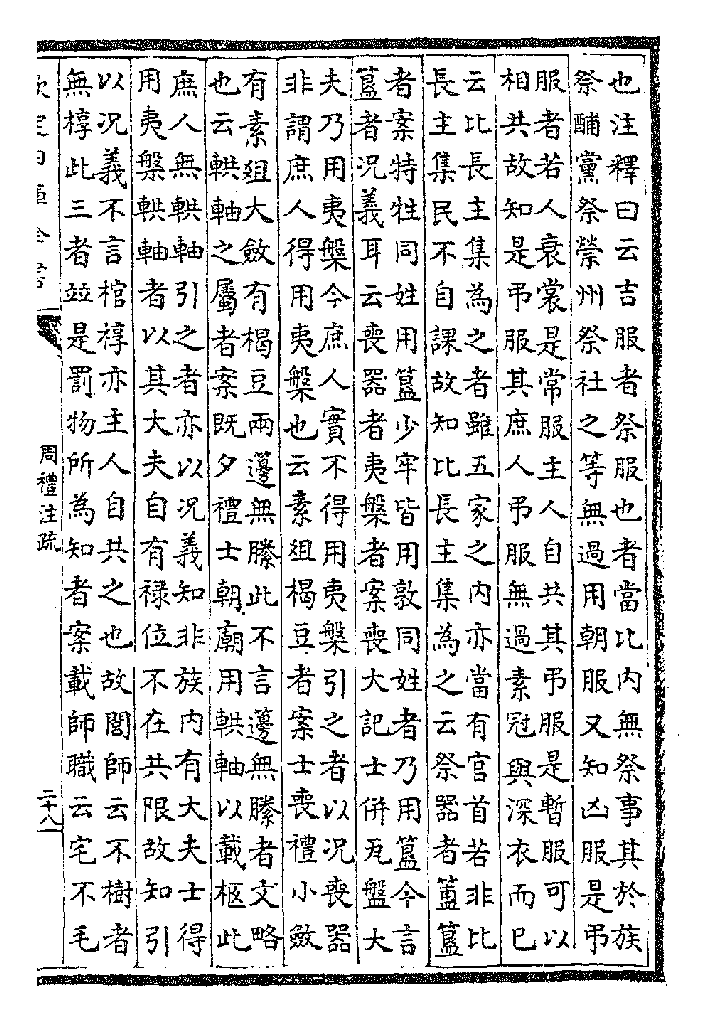 也注釋曰云吉服者祭服也者當比内無祭事其於族
祭酺黨祭禜州祭社之等無過用朝服又知凶服是弔
服者若人衰裳是常服主人自共其弔服是暫服可以
相共故知是弔服其庶人弔服無過素冠與深衣而已
云比長主集為之者雖五家之内亦當有官首若非比
長主集民不自課故知比長主集為之云祭器者簠簋
者案特牲同姓用簋少牢皆用敦同姓者乃用簋今言
簋者况義耳云喪器者夷槃者案喪大記士併瓦盤大
夫乃用夷槃今庶人實不得用夷槃引之者以况喪器
非謂庶人得用夷槃也云素組楬豆者案士喪禮小斂
有素組大斂有楬豆兩邊無縢此不言邊無縢者文略
也云輁軸之屬者案既夕禮士朝廟用輁軸以載柩此
庶人無輁軸引之者亦以况義知非族内有大夫士得
用夷槃輁軸者以其大夫自有禄位不在共限故知引
以况義不言棺椁亦主人自共之也故閭師云不樹者
無椁此三者並是罰物所為知者案載師職云宅不毛
欽定四庫全書
周禮注疏
二十八